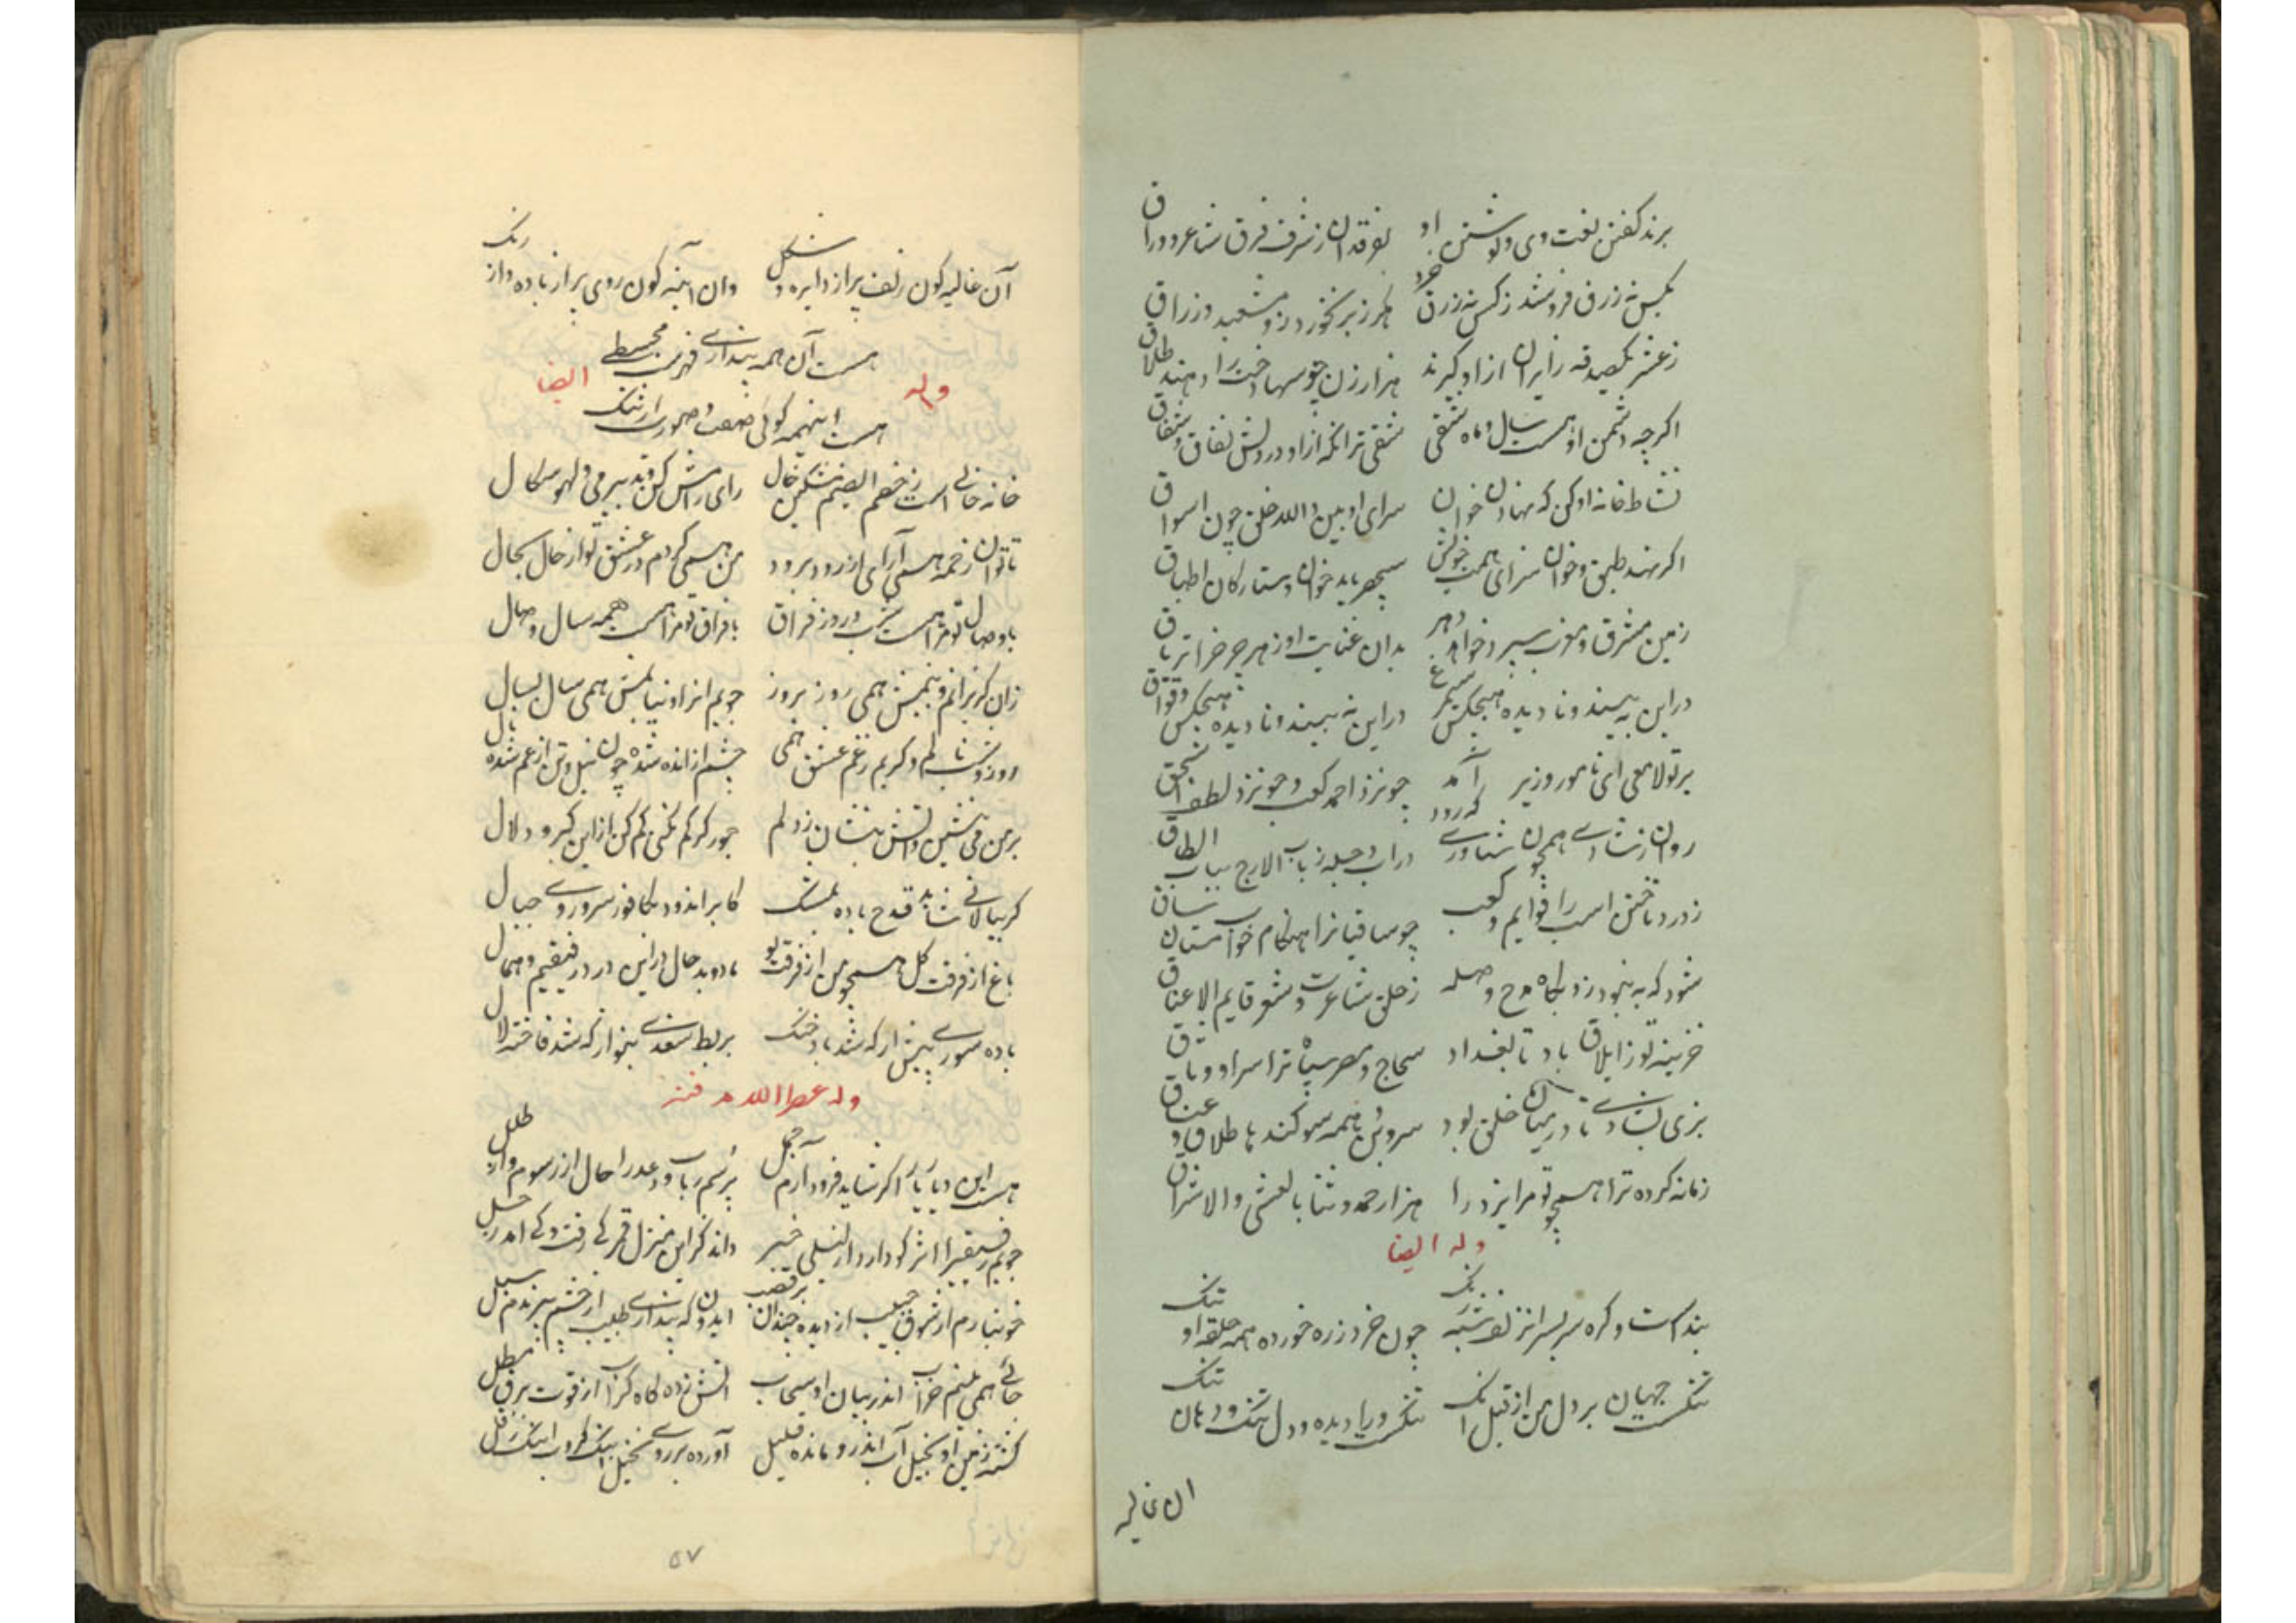 برند کفش لغت وی و لوشنن او بفرقدان ز شرف فرق شاعر و وراق
بکس نه زرق فروشد ز کس نه زرق خرد هرز بر نخورد زو مشعبد و زراق
ز عشر یکصدقه زایران ازاد گیرند هزار زن چو سها دخت را دهند طلاق
اگرچه دشمن او هست سال و ماه شقی شقی تر انکه ازاو در دلش نفاق و شقاق
نشاط خانه او کن که نهادن خوان سرای او بین والله خلق چون اسواق
اگر نهند طبق و خوان سزای همت خویش سپهر باید خوان و ستارکان اطباق
زمین مشرق و مغرب سپرد خواهد دهر بدان عنایت او زهر جز تریاق
در این به بیند و نادیده هیچکس سیمرغ در این نه بیند و نادیده هیچکس وقواق
بر تو لامعی ای نامور وزیر آمد چو نزد احمد کعب و چو نزد لطف اسحق
روان ز شادی همچون شناوری که رود در آب دجله ز باب الازج بباب الطاق
ز درد تاختن اسب را قوایم و کعب چو ساقیانرا هنگام خواب مستان ساق
شود که به نبود نزد بگاه مدح و صله ز خلق شاعرت و شعر قایم الاعناق
خزینه تو ز ایلاق باد تا بغداد سجاج و مصر سپاه ترا سرا و وثاق
بزی بشادی تا در میان خلق بود سروش بهمه سوگندها طلاق و عتاق
زمانه کرده ترا همچو تو مر ایزد را هزار حمد و ثنا بالعشی والاشراق
وله ایضا
بنداست و گره سربسر انزلف شبه رنگ چون خرد زره خورده همه حلقه او تنگ
تنگست جهان بر دل من از قبل انک تنگست وریا دیده و دل تنگ و دهان تنگ
ان غالیه
آن غالیه گون زلف پر از دایره و شکل وان آینه گون روی پر از باده و از رنگ
هست آن همه پنداری فهرست مجسطی
وله ایضا
هست اینهمه گوئی صفت و صورت ارتنگ
خانه خالی است ز خصم الصنم مشکین خال رای رامش کن و تدبیر می و لهو سکال
تا توان زخمه همی آرای از رود برود من همی گردم در عشق تو از حال بحال
با وصال تو مرا هست شب و روز فراق با فراق تو مرا هست همه سال وصال
زان گریزانم و بینمش همی روز بروز جویم انرا و نیابمش همی سال بسال
روز و شب نالم و گریم ز غم عشق همی چشم از انده شده چون نیل و تن از غم شده نال
بر من می نشین و آتش بنشان ز دلم جور گر کم نکنی کم کن ازاین کبر و دلال
گر ببالائی شاید قدح باده بمشک کابر اندود بکافور سر و روی جبال
باغ از فرقت گل همچو من از فرقت تو با دو بد حال در این درد رفیقیم و همال
باده سوری پیش ار که شد باد خنک بربط سغدی بنواز که شد فاخته لال
وله عطر الله مرقده
هست این دیار یار اگر شاید فرود آرم جمل پرسم رباب و دعد را حال از رسوم و از طلل
جویم رفیقی را اثر کو دارد از لیلی خبر داند کز این منزل قمر کی رفت و کی آمد زحل
خونبارم از شوق حبیب از دیده چندان بر قضیب ایدون که پنداری طبیب از چشم بیرندم سبل
جائی همی بینم خراب اندر میان او سحاب آتش زده گاه کراب از قوت برق بطل
گشته زمین او بخیل آب اندرو مانده قلیل آورده بر روی نخیل
۵۷